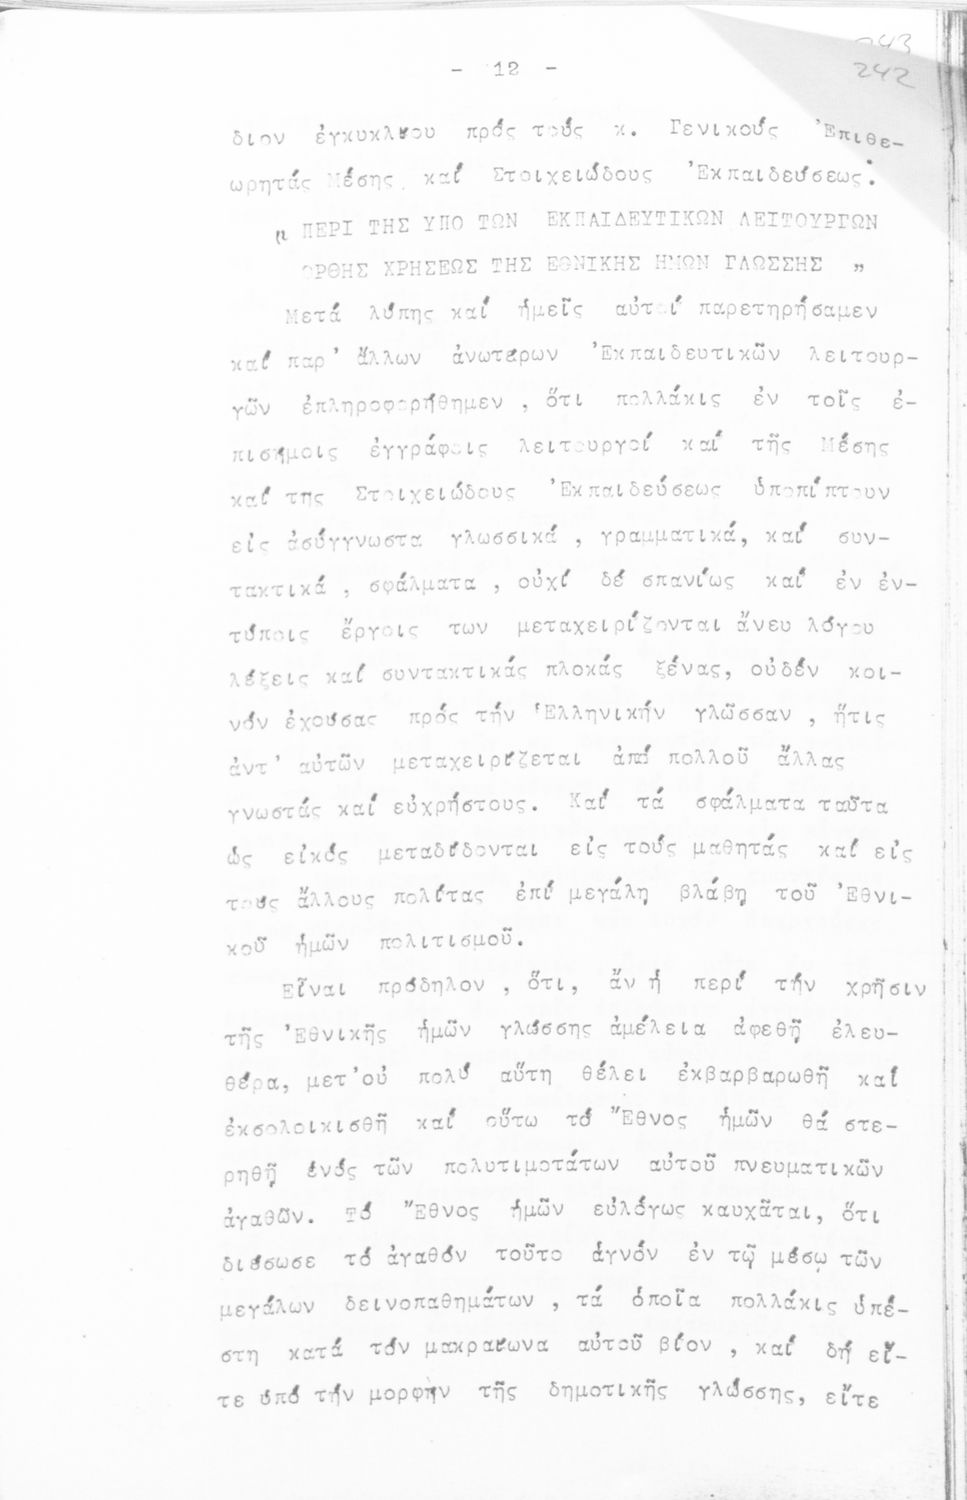 243
242
- 12 -
διον ἐγκυκλίου πρός τούς κ. Γενικούς Ἐπιθε-
ωρητάς Μέσης καί Στοιχειώδους Ἐκπαιδεύσεως:
" ΠΕΡΙ ΤΗΣ ΥΠΟ ΤΩΝ ΕΚΠΑΙΔΕΥΤΙΚΩΝ ΛΕΙΤΟΥΡΓΩΝ
ΟΡΘΗΣ ΧΡΗΣΕΩΣ ΤΗΣ ΕΘΝΙΚΗΣ ΗΜΩΝ ΓΛΩΣΣΗΣ "
Μετά λύπης καί ἡμεῖς αὐτοί παρετηρήσαμεν
καί παρ' ἄλλων ἀνωτέρων Ἐκπαιδευτικῶν λειτουρ-
γῶν ἐπληροφορήθημεν , ὅτι πολλάκις ἐν τοῖς ἐ-
πισήμοις ἐγγράφοις λειτουργοί καί τῆς Μέσης
καί της Στοιχειώδους Ἐκπαιδεύσεως ὑποπίπτουν
εἰς ἀσύγγνωστα γλωσσικά , γραμματικά, καί συν-
τακτικά , σφάλματα , οὐχί δέ σπανίως καί ἐν ἐν-
τύποις ἔργοις των μεταχειρίζονται ἄνευ λόγου
λέξεις καί συντακτικάς πλοκάς ξένας, οὐδέν κοι-
νόν ἐχούσας πρός τήν Ἑλληνικήν γλῶσσαν , ἥτις
ἀντ' αὐτῶν μεταχειρίζεται ἀπό πολλοῦ ἄλλας
γνωστάς καί εὐχρήστους. Καί τά σφάλματα ταῦτα
ὡς εἰκός μεταδίδονται εἰς τούς μαθητάς καί εἰς
τους ἄλλους πολίτας ἐπί μεγάλη βλάβη τοῦ Ἐθνι-
κοῦ ἡμῶν πολιτισμοῦ.
Εἶναι πρόδηλον , ὅτι, ἄν ἡ περί τήν χρῆσιν
τῆς Ἐθνικῆς ἡμῶν γλώσσης ἀμέλεια ἀφεθῆ ἐλευ-
θέρα, μετ'οὐ πολύ αὕτη θέλει ἐκβαρβαρωθῆ καί
ἐκσολοικισθῆ καί οὕτω τό Ἔθνος ἡμῶν θά στε-
ρηθῆ ἑνός τῶν πολυτιμοτάτων αὐτοῦ πνευματικῶν
ἀγαθῶν. Τό Ἔθνος ἡμῶν εὐλόγως καυχᾶται, ὅτι
διέσωσε τό ἀγαθόν τοῦτο ἁγνόν ἐν τῷ μέσῳ τῶν
μεγάλων δεινοπαθημάτων , τά ὁποῖα πολλάκις ὑπέ-
στη κατά τόν μακραίωνα αὐτοῦ βίον , καί δή εἴ-
τε ὑπό τήν μορφήν τῆς δημοτικῆς γλώσσης, εἴτε